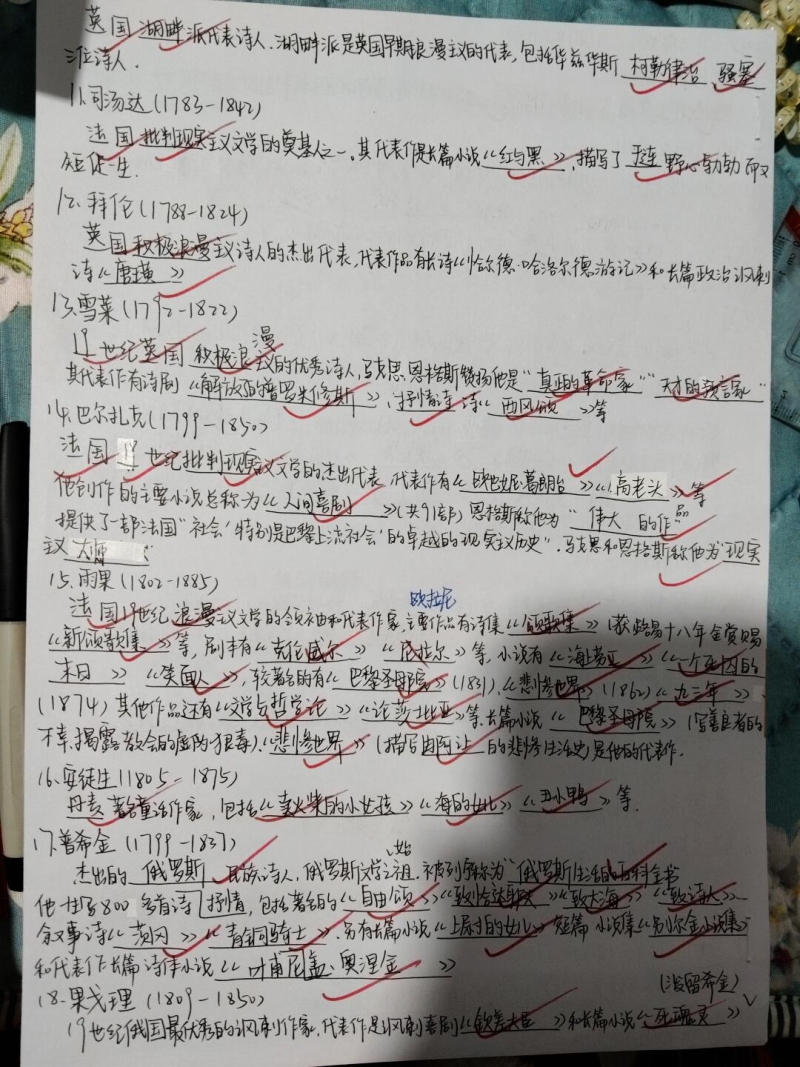 英国湖畔派代表诗人.湖畔派是英国早期浪漫主义的代表,包括华兹华斯 柯勒律治、骚塞
三位诗人.
11.司汤达(1783-1842)
法国批判现实主义文学的奠基人之一。其代表作是长篇小说《红与黑》,描写了于连野心勃勃而又
短促一生.
12.拜伦(1788-1824)
英国积极浪漫主义诗人的杰出代表,代表作品有长诗《恰尔德·哈洛尔德游记》和长篇政治讽刺
诗《唐璜》
13.雪莱(1792-1822)
19世纪英国积极浪漫主义的优秀诗人,马克思恩格斯赞扬他是"真正的革命家""天才的预言家"
其代表作有诗剧《解放了的普罗米修斯》、抒情诗《西风颂》等
14.巴尔扎克(1799-1850)
法国19世纪批判现实主义文学的杰出代表.代表作有《欧也妮葛朗台》《高老头》等
他创作的主要小说总称为《人间喜剧》(共91部)恩格斯称他为"伟大的作品
提供了一部法国"社会'特别是巴黎上流社会'的卓越的现实主义历史".马克思和恩格斯称他为"现实
主义大师
15.雨果(1802-1885)
欧拉尼
法国19世纪浪漫主义文学的领袖和代表作家,主要作品有诗集《颂歌集》(获路易十八年金赏赐
《新颂歌集》等,剧本有《克伦威尔》《》等,小说有《海劳亚》《一个死囚的
末日》《笑面人》,较著名的有《巴黎圣母院》(1831),《悲惨世界》(1862)《九三年》
(1874)其他作品还有《文学与哲学论》《论莎士比亚》等.长篇小说《巴黎圣母院》(写善良者的
不幸,揭露教会的虚伪、狠毒)、《悲惨世界》(描写冉阿让的悲惨生活史)是他的代表作.
16.安徒生(1805-1875)
丹麦著名童话作家,包括《卖火柴的小女孩》《海的女儿》《丑小鸭》等.
17.普希金(1799-1837)
杰出的俄罗斯民族诗人,俄罗斯文学之始祖.被别评称为"俄罗斯生活的百科全书
他一生写800多首诗抒情,包括著名的《自由颂》《致恰达耶夫》《致大海》《致诗人》
叙事诗《茨冈》《青铜骑士》.另有长篇小说《上尉的女儿》短篇小说集《别尔金小说集》
和代表作长篇诗体小说《叶甫尼盖·奥涅金》
18.果戈理(1809-1850)
(没留希金)
19世纪俄国最优秀的讽刺作家.代表作是讽刺喜剧《钦差大臣》和长篇小说《死魂灵》